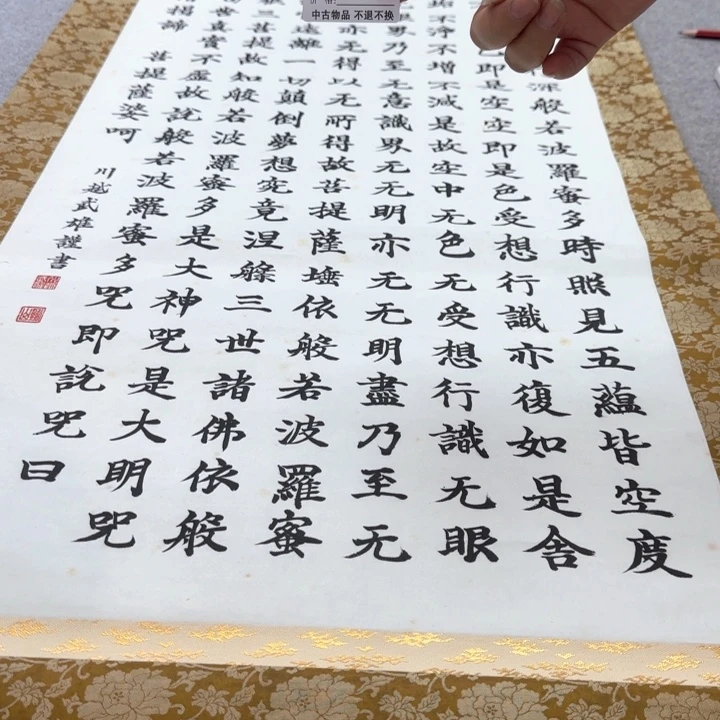 中古物品 不退不换
深般若波羅蜜多時照見五蘊皆空度
色即是空空即是色受想行識亦復如是舍
垢不淨不增不減是故空中无色无受想行識无眼
界乃至无意識界无无明亦无无明盡乃至无
亦无得以无所得故菩提薩埵依般若波羅蜜
遠離一切顛倒夢想究竟涅槃三世諸佛依般
三菩提故知般若波羅蜜多是大神咒是大明咒
真實不虛故說般若波羅蜜多咒即說咒曰
揭諦 菩提薩婆呵
川越武雄謹書